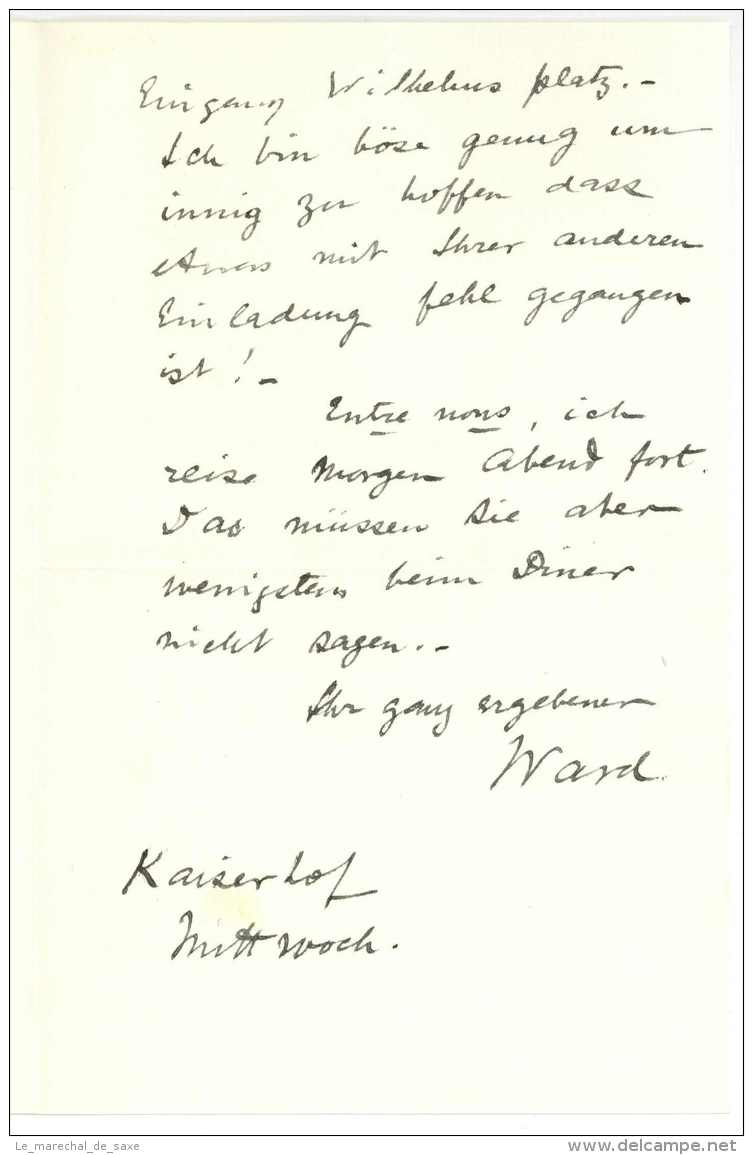 Eingang Wilhelms platz. -
Ich bin böse genug um
innig zu hoffen dass
etwas mit Ihrer anderen
Einladung fehl gegangen
ist! -
Entre nous, ich
reise morgen Abend fort.
Das müssen Sie aber
wenigstens beim Diner
nicht sagen. -
Ihr ganz ergebener
Ward.
Kaiserhof
Mittwoch.
Le_marechal_de_saxe
delcampe.net